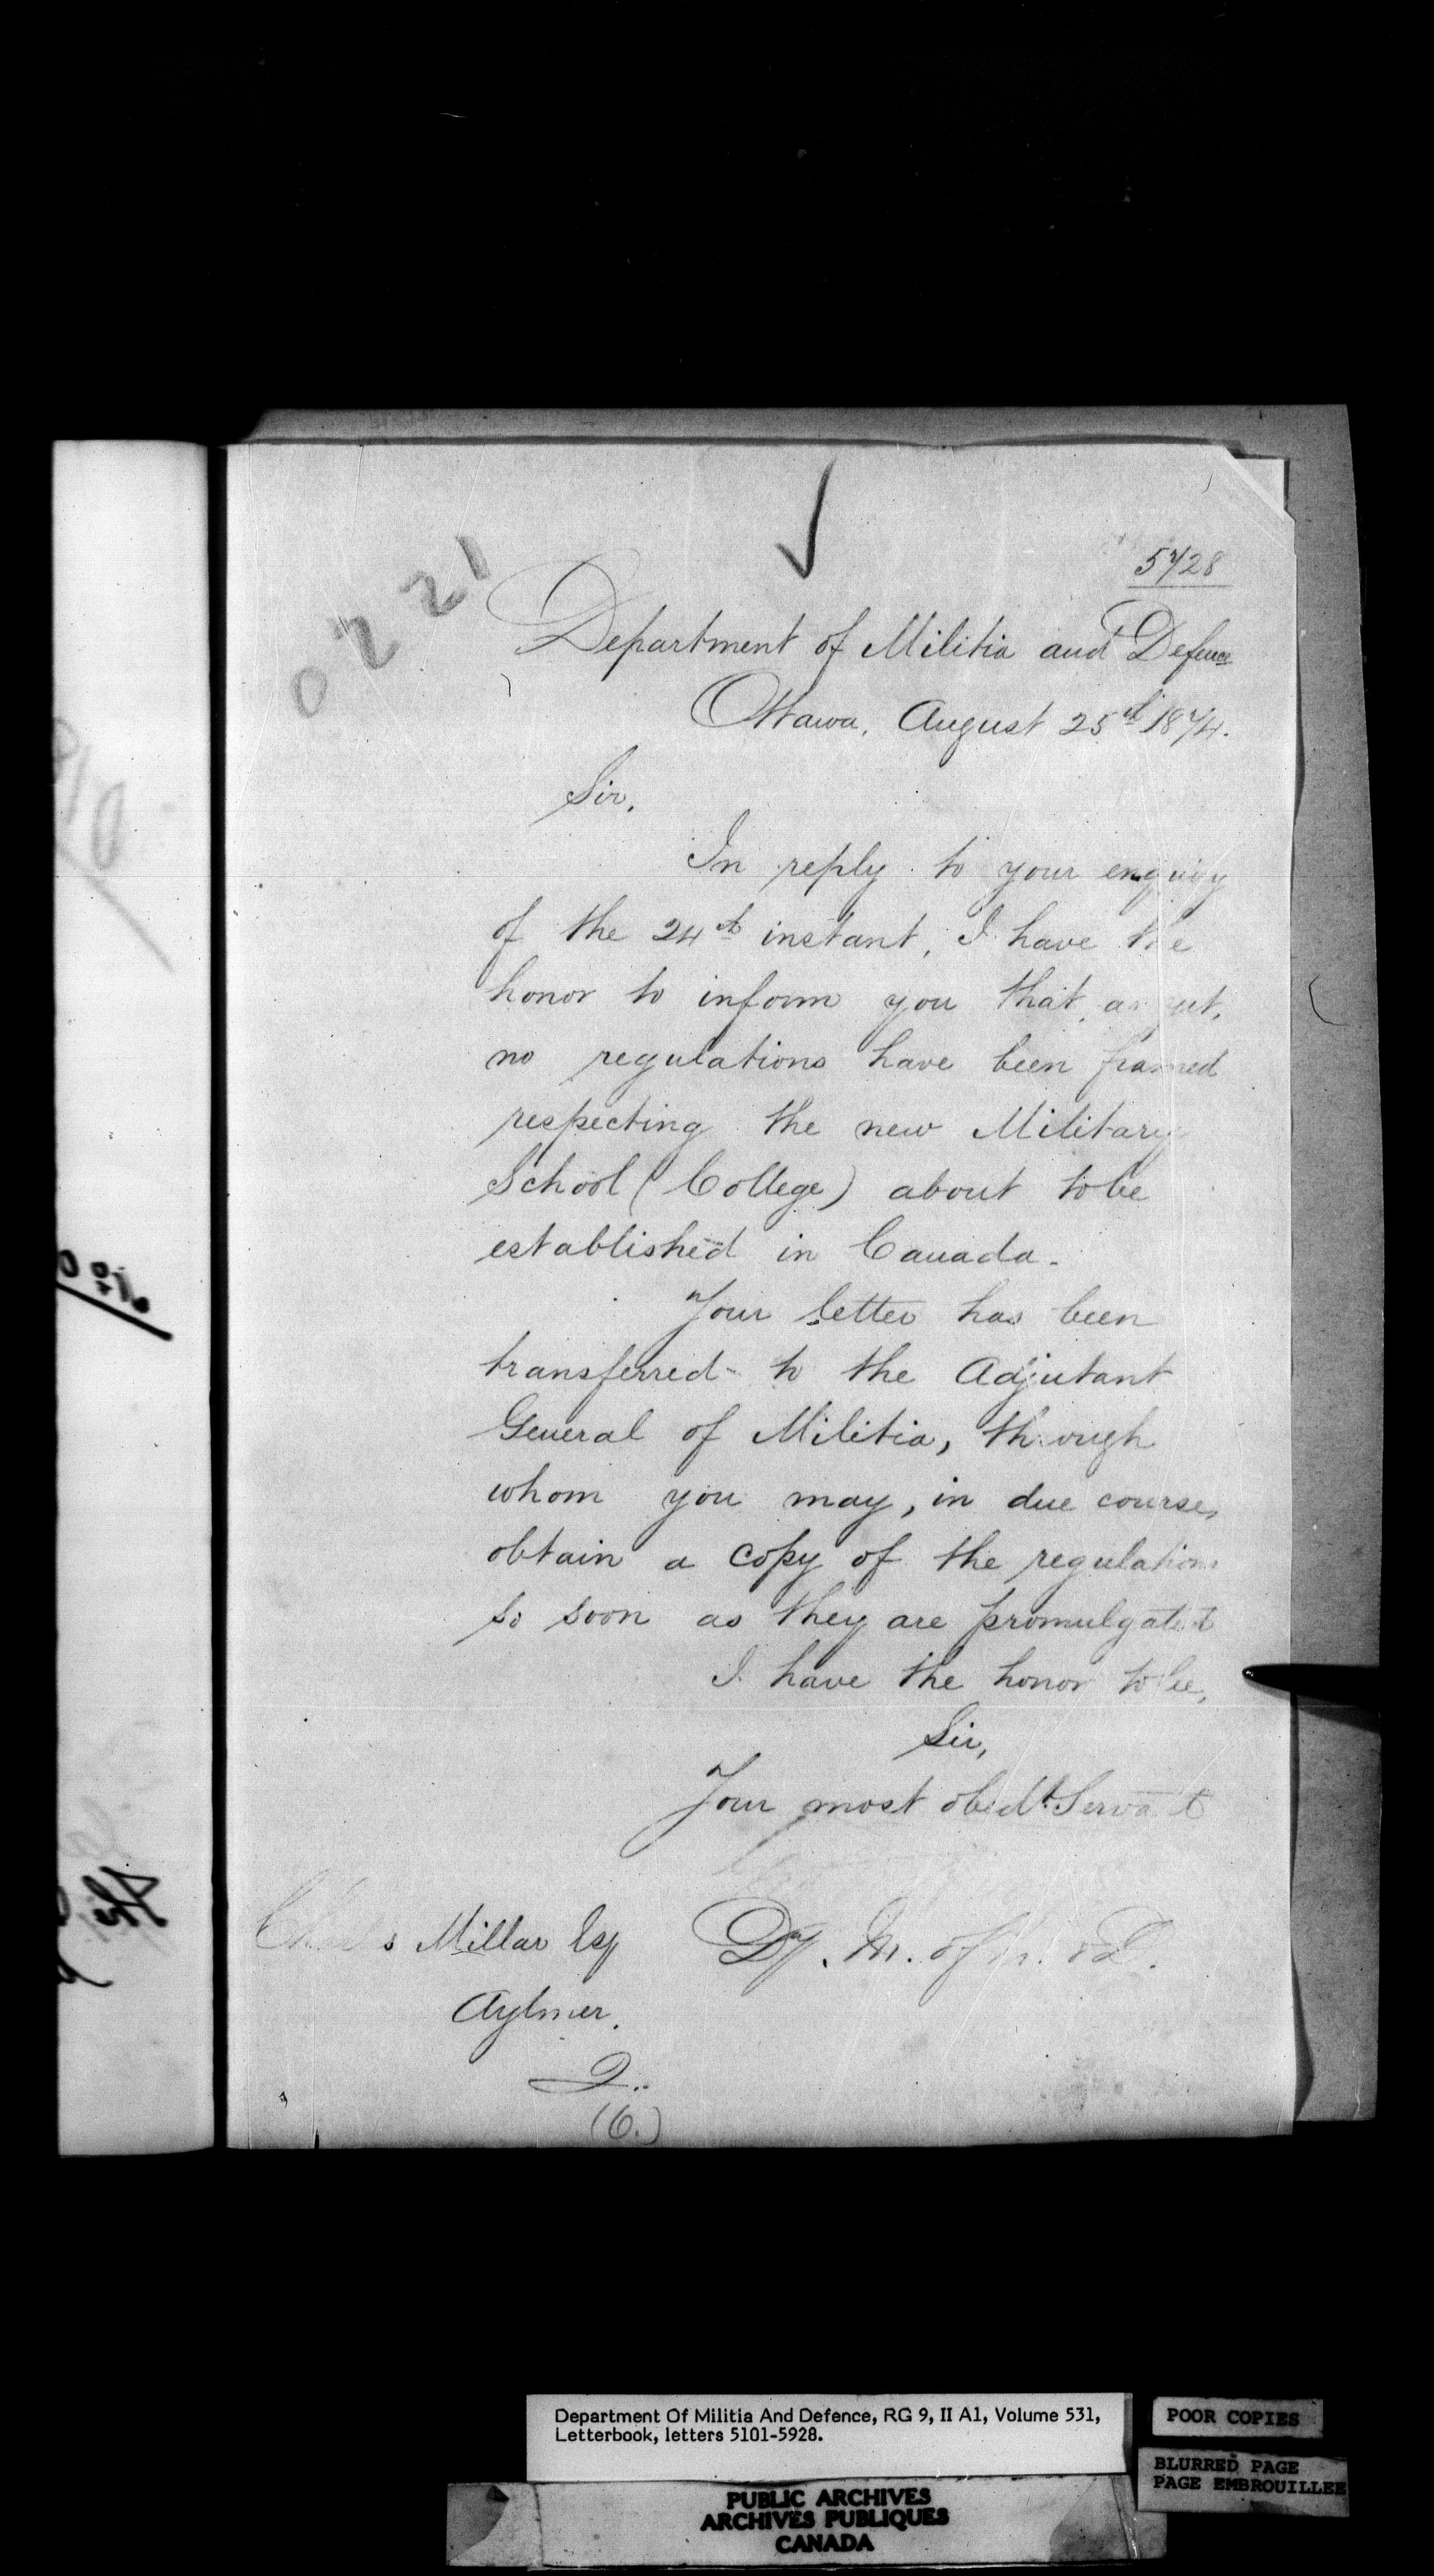 5728
0221
Department of Militia and Defence
Ottawa, August 25th 1874.
Sir,
In reply to your enquiry
of the 24th instant, I have the
honor to inform you that, as yet,
no regulations have been framed
respecting the new Military
School (College) about to be
established in Canada.
Your letter has been
transferred to the Adjutant
General of Militia, through
whom you may, in due course,
obtain a copy of the regulations
so soon as they are promulgated
I have the honor to be,
Sir,
Your most obedt. Servant
Charles Millar Esq
Dy. M. of M. & D.
Aylmer.
Q..
(6.)
Department Of Militia And Defence, RG 9, II A1, Volume 531,
Letterbook, letters 5101-5928.
POOR COPIES
BLURRED PAGE
PAGE EMBROUILLEE
PUBLIC ARCHIVES
ARCHIVES PUBLIQUES
CANADA